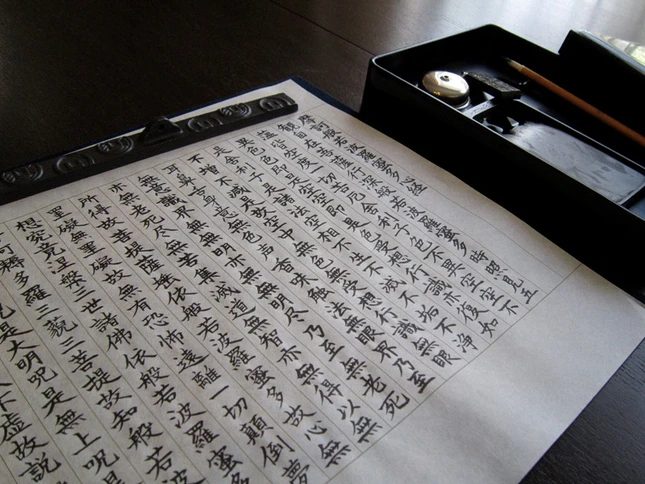 摩訶般若波羅蜜多心経
観自在菩薩行深般若波羅蜜多時照見五
蘊皆空度一切苦厄舎利子色不異空空不
異色色即是空空即是色受想行識亦復如
是舎利子是諸法空相不生不滅不垢不浄
不増不減是故空中無色無受想行識無眼
耳鼻舌身意無色声香味触法無眼界乃至
無意識界無無明亦無無明尽乃至無老死
亦無老死尽無苦集滅道無智亦無得以無
所得故菩提薩埵依般若波羅蜜多故心無
罣礙無罣礙故無有恐怖遠離一切顛倒夢
想究竟涅槃三世諸佛依般若波羅蜜多
耨多羅三藐三菩提故知般若波
是大明呪是無上呪是
虚故説